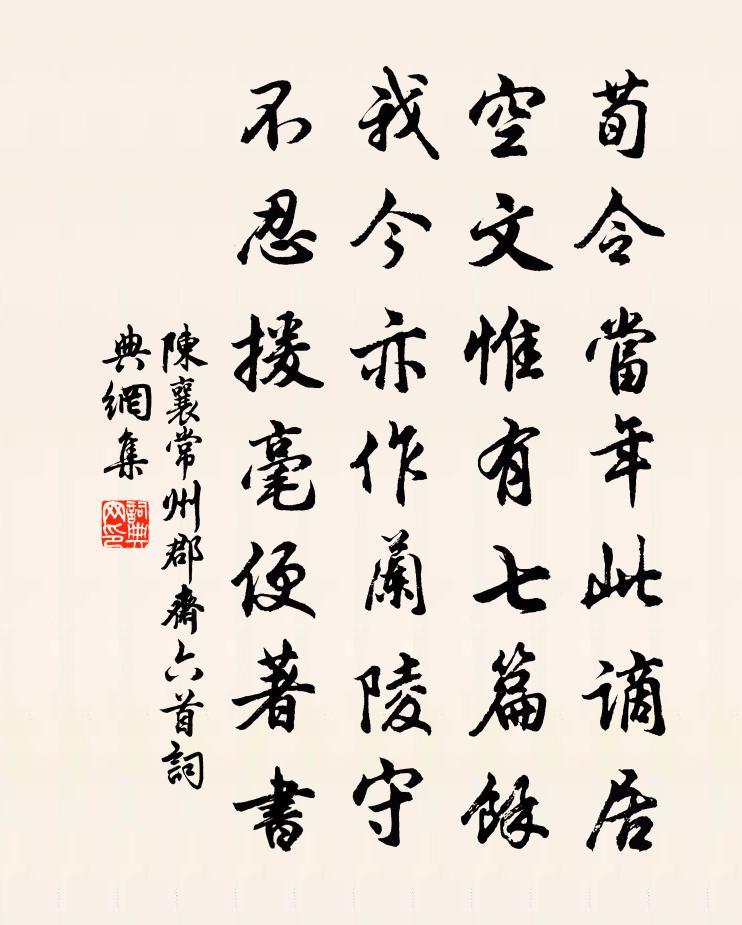 荀令當年此謫居
空文惟有七篇餘
我今亦作蘭陵守
不忍援毫便著書
陳襄常州郡齋六首詞
典網集
詞典
网印